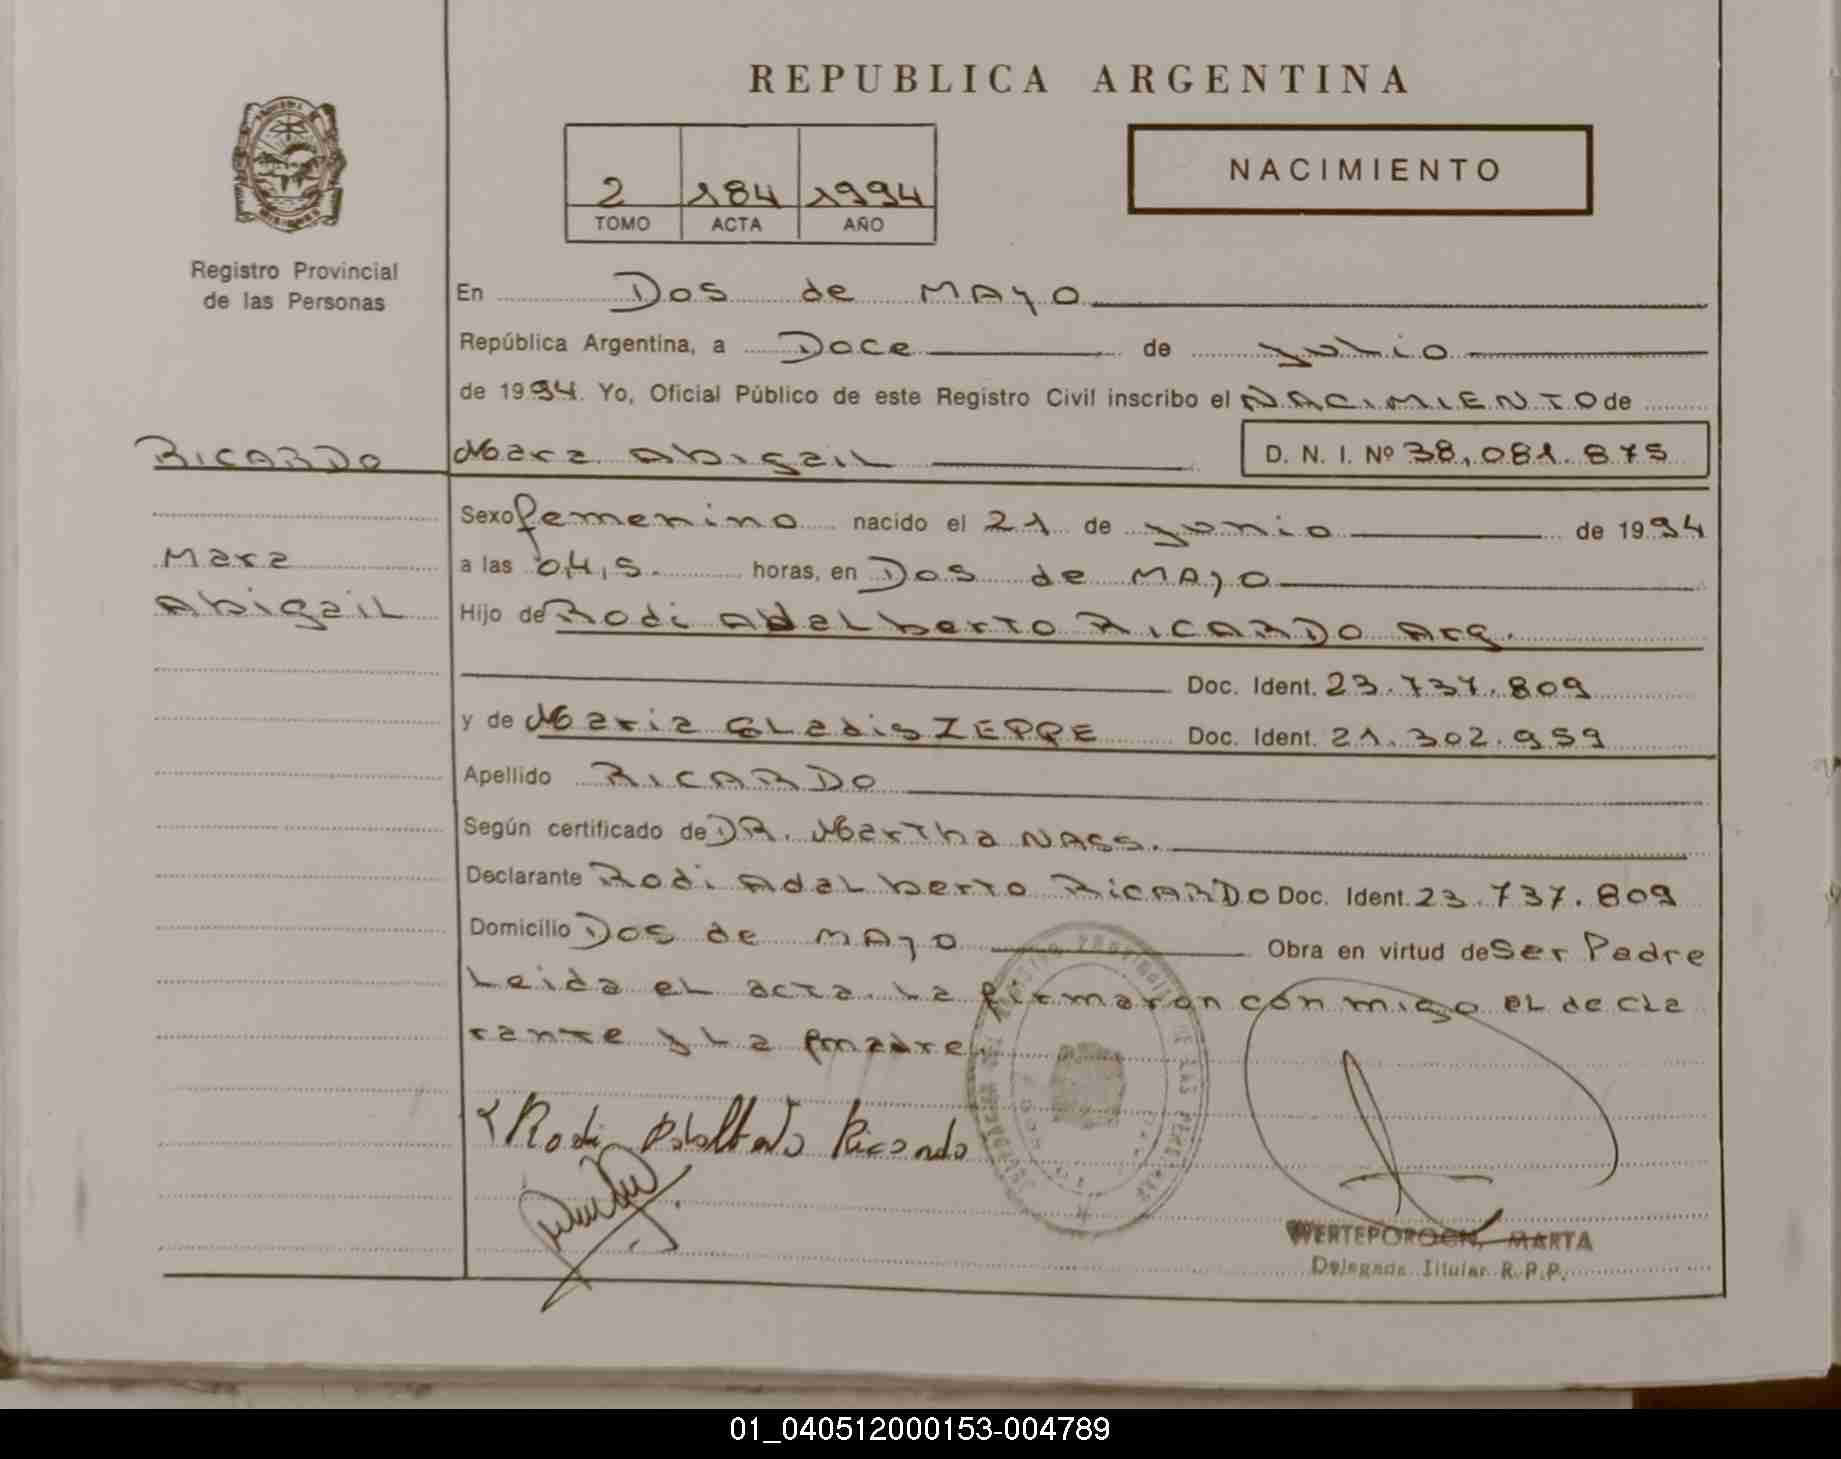 REPUBLICA ARGENTINA
2 184 1994
TOMO ACTA AÑO
NACIMIENTO
Registro Provincial
de las Personas
En Dos de MAyo
República Argentina, a Doce de Julio
de 1994. Yo, Oficial Público de este Registro Civil inscribo el NACIMIENTO de
RICARDO Mara Abigail D. N. I. Nº 38.081.875
Sexo femenino nacido el 21 de Junio de 1994
Mara
a las 0,4,5. horas, en Dos de MAyo
Abigail
Hijo de Rodi Adalberto RICARDO Arg.
Doc. Ident. 23.737.809
y de Maria Gladis ZEPPE Doc. Ident. 21.302.959
Apellido RICARDO
Según certificado de DR. Martha NASS.
Declarante Rodi Adalberto RICARDO Doc. Ident. 23.737.809
Domicilio Dos de MAyo Obra en virtud de Ser Padre
Leida el acta. La firmaron con migo el decla
rante y La madre.
Rodi Adalberto Ricardo
REGISTRO PROVINCIAL DE LAS PERSONAS
MARTA
Delegada Titular R.P.P.
01_040512000153-004789